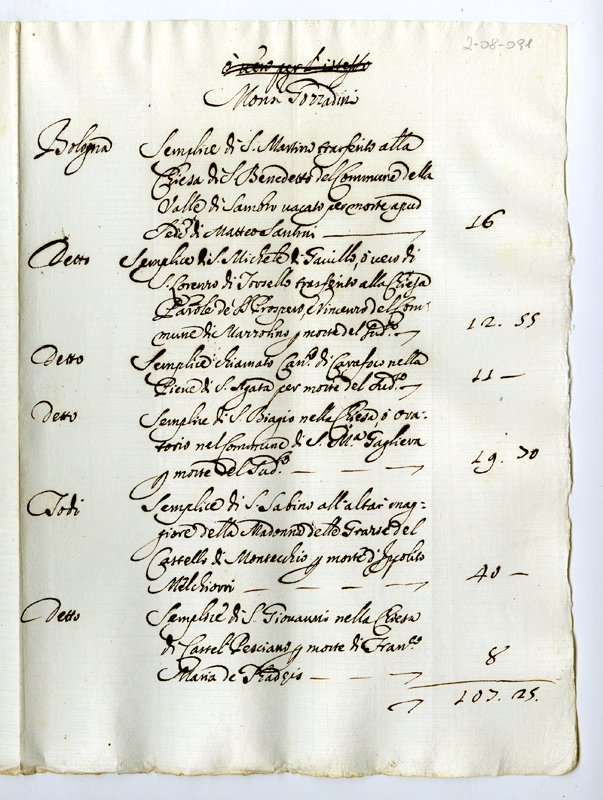 2-08-091
o vero per l'istesso
Monr Torradini
Bologna Semplice di S. Martino trasferito alla
Chiesa di S. Benedetto del Commune della
Valle di Sambro vacato per morte apud
Sede di Matteo Santini — 16
Detto Semplice di S. Michele di Gavillo, ò vero di
S. Lorenzo di trasferito alla Chiesa
Parole de' SS. Prospero, e Vincenzo del Com-
mune di Mazzolino p morte del sudo. 12. 55
Detto Semplice chiamato Cano. di Carafoco nella
Pieve di S. Agata per morte del sudo. 11 —
Detto Semplice di S. Biagio nella Chiesa, ò ora-
torio nel Commune di S. Ma. Gaglieva
p morte del sudo. — — — 19. 70
Todi Semplice di S. Sabino all'altar mag-
giore della Madonna delle Grazie del
Castello di Montecchio p morte d'Ipolito
Melchiorri — — — — 40 —
Detto Semplice di S. Giovanni nella Chiesa
di Castel Pesciano p morte di Franco.
Maria de — — 8
107. 25.